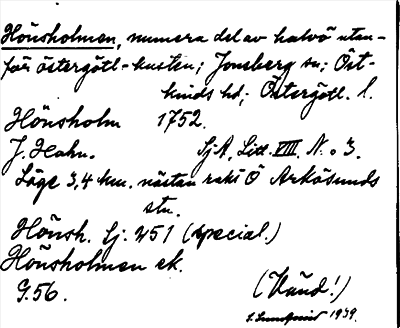 Hönsholmen, numera del av halvö utan-
för östergötl-kusten; Jonsberg sn; Öst-
kinds hd; Östergötl. l.
Hönsholm 1752.
J. Hahn. SjA, Litt. VIII. N:o 3.
Läge 3,4 km. nästan rakt Ö Arkösunds
stn.
Hönsh. Sj: 251 (special.)
Hönsholmen ek.
G.56. (Vänd!)
1939.